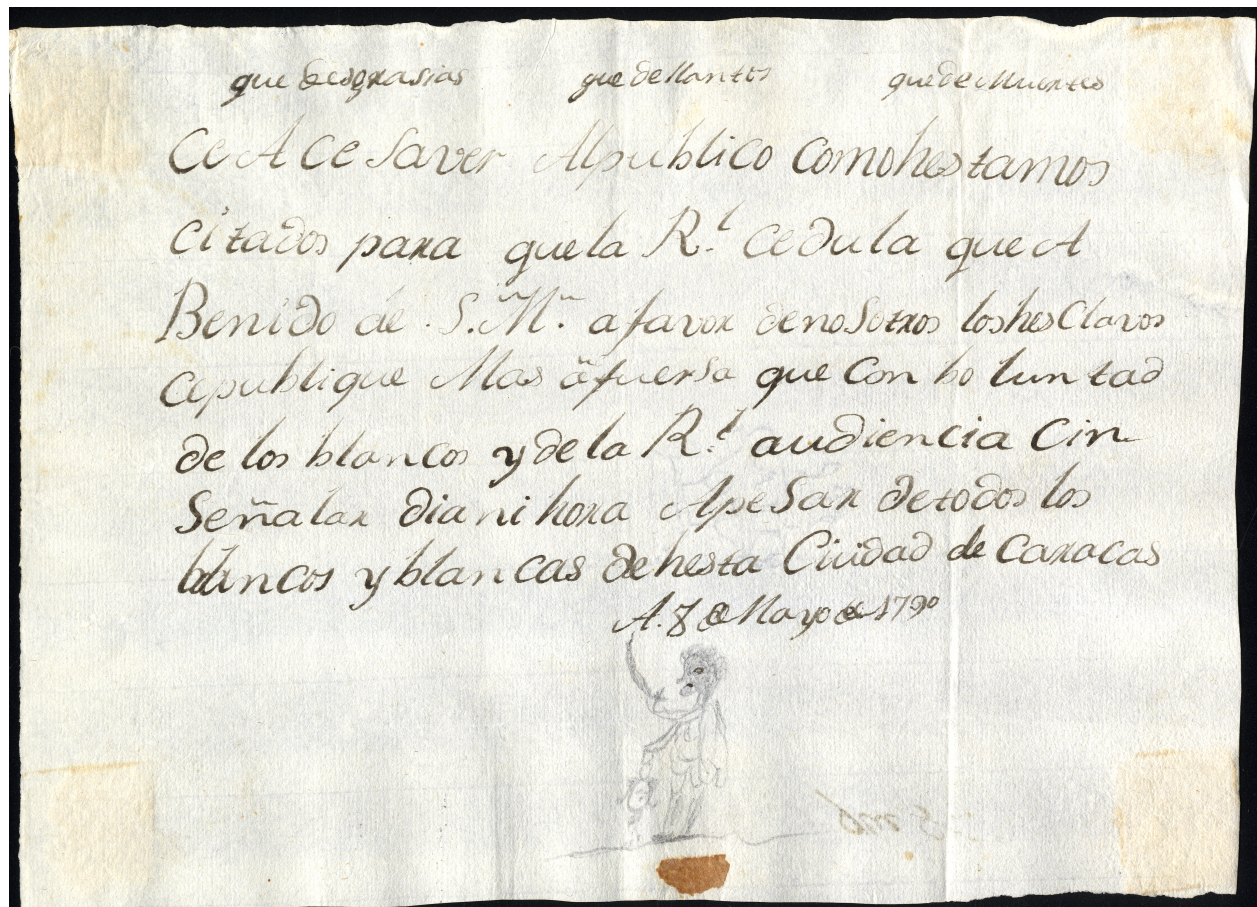 que desgrasias que de llantos que de Muertes
Ce A Ce Saver Al publico como hestamos
Citados para que la R.l Cedula que A
Benido de S. M. a favor de nosotros los hesClavos
Cepublique Mas a fuersa que Con bo lun tad
de los blancos y de la R.l audiencia Cin
Señalar dia ni hora Ape Sar de todos los
blancos y blancas de hesta Ciudad de Caracas
A. 8 de Mayo de 1790